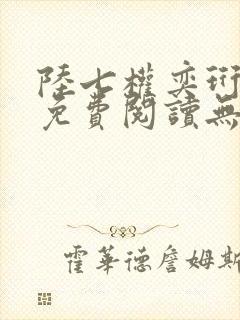 陸七權奕珩
免費閱讀無
霍華德詹姆斯